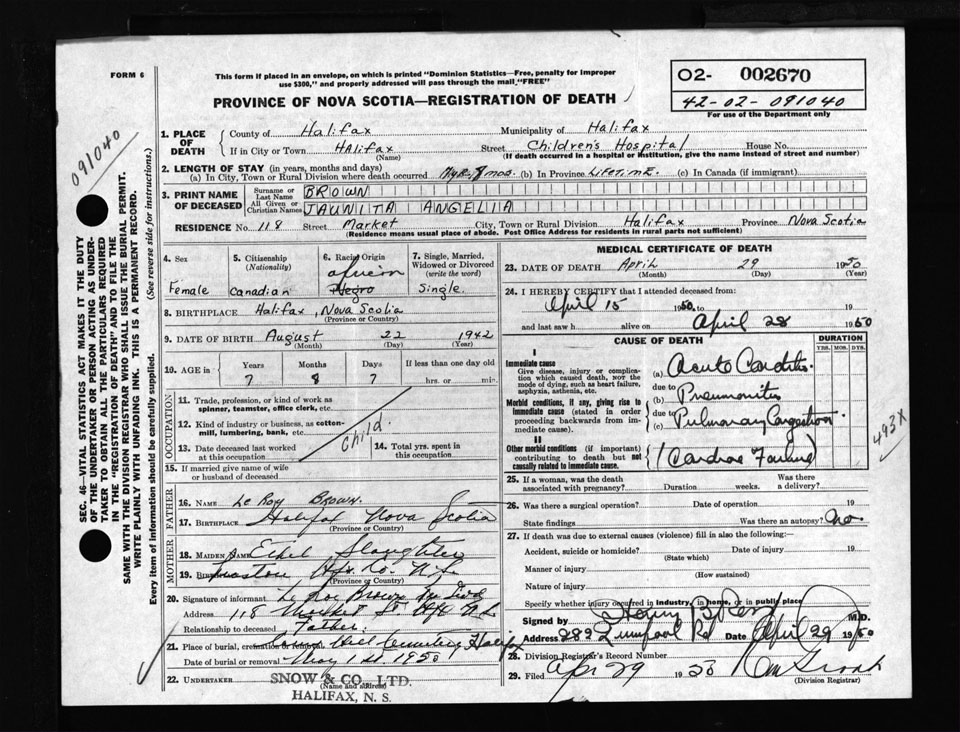 FORM 6
This form if placed in an envelope, on which is printed "Dominion Statistics—Free, penalty for improper
use $300," and properly addressed will pass through the mail "FREE"
PROVINCE OF NOVA SCOTIA—REGISTRATION OF DEATH
02- 002670
42-02-091040
For use of the Department only
091040
SEC. 46—VITAL STATISTICS ACT MAKES IT THE DUTY
OF THE UNDERTAKER OR PERSON ACTING AS UNDER-
TAKER TO OBTAIN ALL THE PARTICULARS REQUIRED
IN THE "REGISTRATION OF DEATH" AND TO FILE THE
SAME WITH THE DIVISION REGISTRAR WHO SHALL ISSUE THE BURIAL PERMIT.
WRITE PLAINLY WITH UNFADING INK. THIS IS A PERMANENT RECORD.
Every item of information should be carefully supplied. (See reverse side for instructions.)
1. PLACE OF DEATH County of Halifax Municipality of Halifax
If in City or Town Halifax (Name) Street Children's Hospital House No.
(If death occurred in a hospital or institution, give the name instead of street and number)
2. LENGTH OF STAY (in years, months and days)
(a) In City, Town or Rural Division where death occurred 7 yrs. 8 mos. (b) In Province Lifetime. (c) In Canada (if immigrant)
3. PRINT NAME OF DECEASED Surname or Last Name BROWN
All Given or Christian Names JAUNITA ANGELIA
RESIDENCE No. 118 Street Market City, Town or Rural Division Halifax Province Nova Scotia
(Residence means usual place of abode. Post Office Address for residents in rural parts not sufficient)
4. Sex Female
5. Citizenship (Nationality) Canadian
6. Racial Origin African Negro
7. Single, Married, Widowed or Divorced (write the word) Single.
8. BIRTHPLACE Halifax, Nova Scotia
(Province or Country)
9. DATE OF BIRTH August 22 1942
(Month) (Day) (Year)
10. AGE in Years Months Days If less than one day old
7 8 7 hrs. or min.
OCCUPATION
11. Trade, profession, or kind of work as
spinner, teamster, office clerk, etc.
12. Kind of industry or business, as cotton-
mill, lumbering, bank, etc.
Child
13. Date deceased last worked
at this occupation
14. Total yrs. spent in
this occupation
15. If married give name of wife
or husband of deceased
FATHER
16. NAME Le Roy Brown.
17. BIRTHPLACE Halifax Nova Scotia
(Province or Country)
MOTHER
18. MAIDEN NAME Ethel Slaughter
19. BIRTHPLACE Preston Hfx. Co. N.S.
(Province or Country)
20. Signature of informant
Address 118 Market St Hfx N.S.
Relationship to deceased Father.
21. Place of burial, cremation or removal Cemetery Halifax
Date of burial or removal May 1st. 1950
22. UNDERTAKER SNOW & CO., LTD.
(Name and address)
HALIFAX, N. S.
MEDICAL CERTIFICATE OF DEATH
23. DATE OF DEATH April 29 1950
(Month) (Day) (Year)
24. I HEREBY CERTIFY that I attended deceased from:
April 15 1950, to 19
and last saw h alive on April 28 1950
CAUSE OF DEATH
DURATION
YRS. MOS. DYS.
I
Immediate cause
Give disease, injury or complica-
tion which caused death, not the
mode of dying, such as heart failure,
asphyxia, asthenia, etc.
(a) Acute Carditis.
due to
Morbid conditions, if any, giving rise to
immediate cause (stated in order
proceeding backwards from im-
mediate cause).
(b) Pneumonitis
due to
(c) Pulmonary Congestion.
II
Other morbid conditions (if important)
contributing to death but not
causally related to immediate cause.
(Cardiac Failure)
493X
25. If a woman, was the death
associated with pregnancy? Duration weeks. Was there
a delivery?
26. Was there a surgical operation? Date of operation 19
State findings Was there an autopsy? No
27. If death was due to external causes (violence) fill in also the following:
Accident, suicide or homicide? Date of injury 19
(State which)
Manner of injury
(How sustained)
Nature of injury
Specify whether injury occurred in industry, in home, or in public place
Signed by M.D.
Address 289 Quinpool Rd Date April 29 1950
28. Division Registrar's Record Number
29. Filed Apr 29
(Division Registrar)